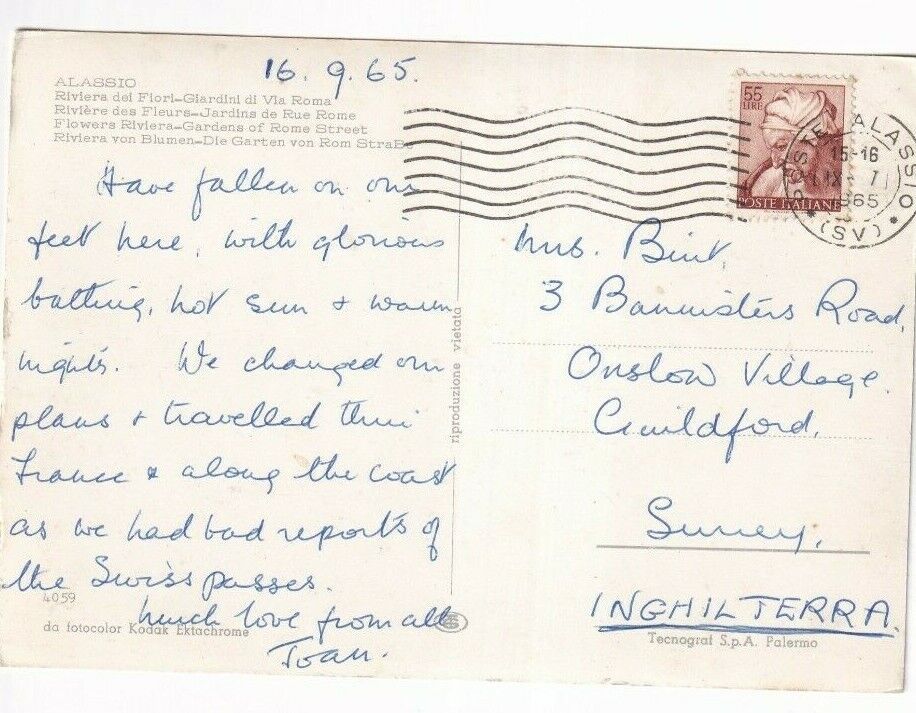 16. 9. 65.
ALASSIO
Riviera dei Fiori-Giardini di Via Roma
Rivière des Fleurs-Jardins de Rue Rome
Flowers Riviera-Gardens of Rome Street
Riviera von Blumen-Die Garten von Rom Straße
Have fallen on our
feet here, with glorious
bathing, hot sun & warm
nights. We changed our
plans & travelled thru'
France & along the coast
as we had bad reports of
the Swiss passes.
Much love from all
Joan.
4059
da fotocolor Kodak Ektachrome
riproduzione vietata
55
LIRE
POSTE ITALIANE
POSTE ALASSIO
15-16
1965
(SV)
Mrs. Bint,
3 Bannisters Road,
Onslow Village.
Guildford,
Surrey,
INGHILTERRA.
Tecnograf S.p.A. Palermo